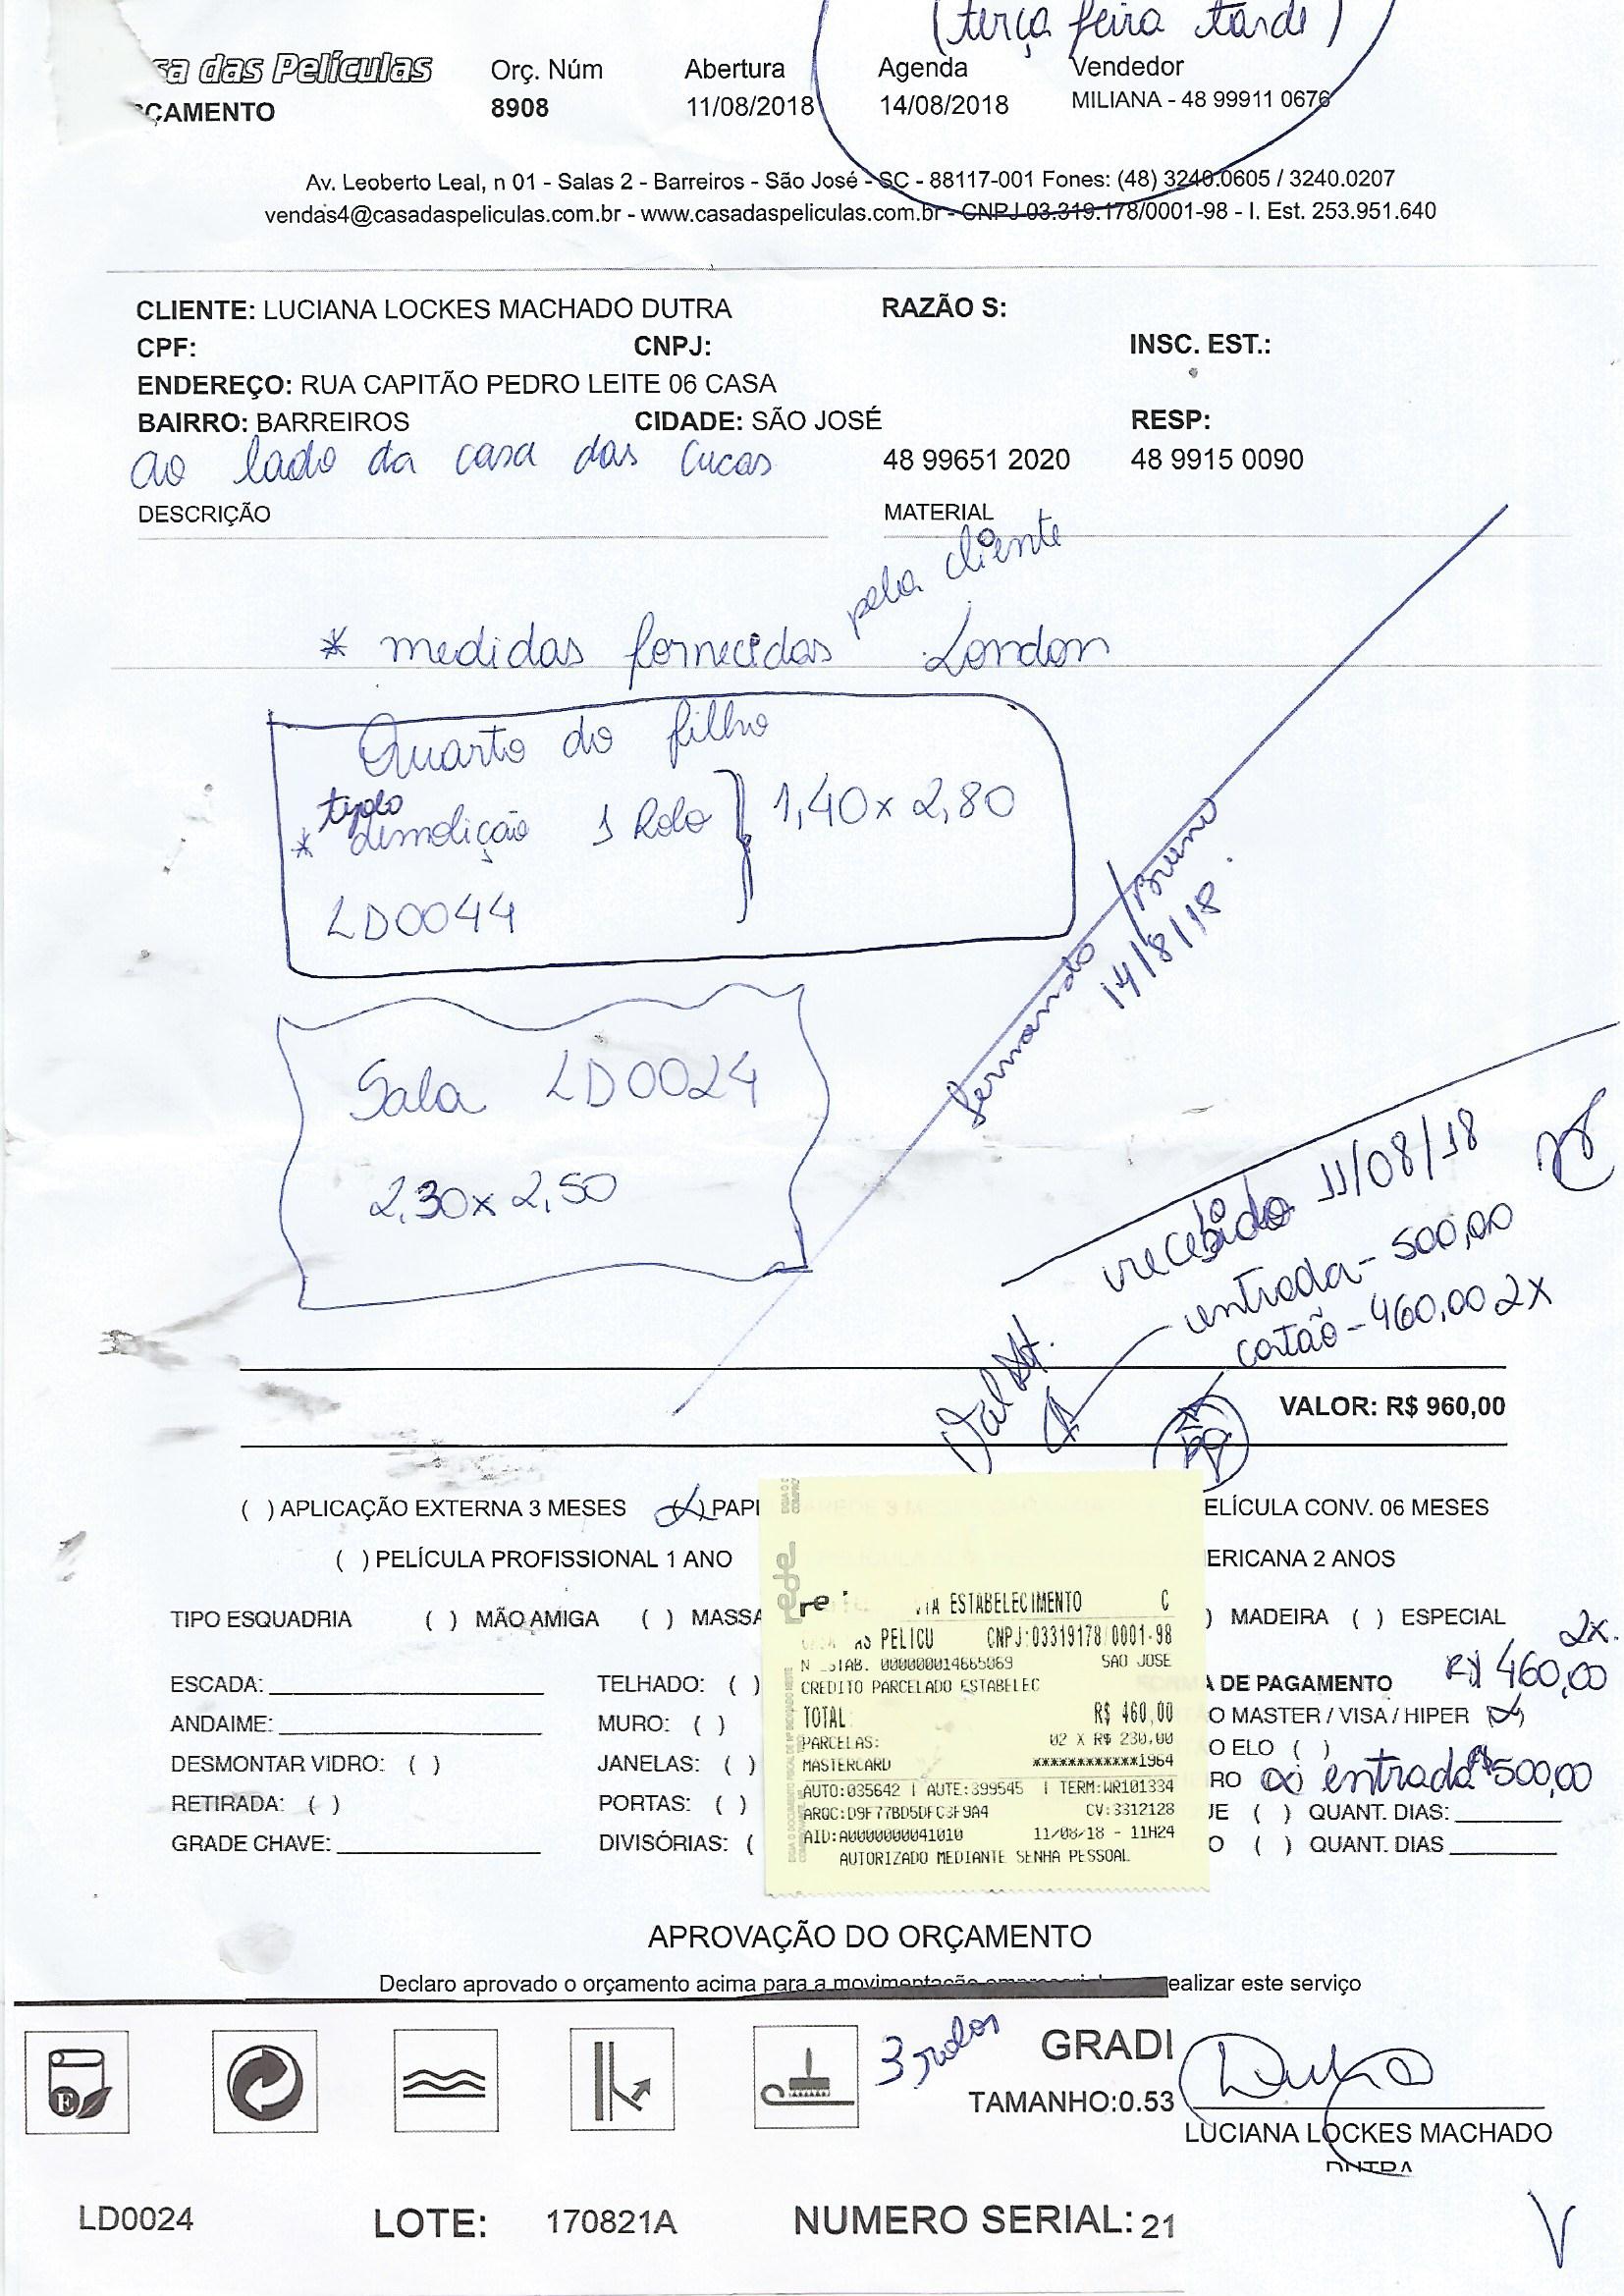 (terça feira tarde)
sa das Películas
Orç. Núm Abertura Agenda Vendedor
ÇAMENTO 8908 11/08/2018 14/08/2018 MILIANA - 48 99911 0676
Av. Leoberto Leal, n 01 - Salas 2 - Barreiros - São José - SC - 88117-001 Fones: (48) 3240.0605 / 3240.0207
vendas4@casadaspeliculas.com.br - www.casadaspeliculas.com.br - CNPJ 03.319.178/0001-98 - I. Est. 253.951.640
CLIENTE: LUCIANA LOCKES MACHADO DUTRA RAZÃO S:
CPF: CNPJ: INSC. EST.:
ENDEREÇO: RUA CAPITÃO PEDRO LEITE 06 CASA
BAIRRO: BARREIROS CIDADE: SÃO JOSÉ RESP:
ao lado da casa das Cucas 48 99651 2020 48 9915 0090
DESCRIÇÃO MATERIAL
pela cliente
* medidas fornecidas London
Quarto do filho
tijolo
* demolição 1 Rolo } 1,40 x 2,80
LD0044
Fernando / Bruno
14/8/18.
Sala LD0024
2,30 x 2,50
recebido 11/08/18
entrada - 500,00
cartão - 460,00 2x
VALOR: R$ 960,00
( ) APLICAÇÃO EXTERNA 3 MESES (X) PAPE ELÍCULA CONV. 06 MESES
( ) PELÍCULA PROFISSIONAL 1 ANO ERICANA 2 ANOS
TIPO ESQUADRIA ( ) MÃO AMIGA ( ) MASSA ) MADEIRA ( ) ESPECIAL
2x.
R$ 460,00
ESCADA: TELHADO: ( ) A DE PAGAMENTO
ANDAIME: MURO: ( ) O MASTER / VISA / HIPER (X)
DESMONTAR VIDRO: ( ) JANELAS: ( ) O ELO ( )
RETIRADA: ( ) PORTAS: ( ) RO (X) entrada R$500,00
UE ( ) QUANT. DIAS:
GRADE CHAVE: DIVISÓRIAS: ( O ( ) QUANT. DIAS
rede
VIA ESTABELECIMENTO C
AS PELICU CNPJ:03319178/0001-98
N ESTAB. 000000014665069 SAO JOSE
CREDITO PARCELADO ESTABELEC
TOTAL R$ 460,00
PARCELAS: 02 X R$ 230,00
MASTERCARD ************1964
AUTO:035642 | AUTE:399545 | TERM:WR101334
ARQC:D9F77BD5DFC3F9A4 CV:3312128
AID:A0000000041010 11/08/18 - 11H24
AUTORIZADO MEDIANTE SENHA PESSOAL
APROVAÇÃO DO ORÇAMENTO
Declaro aprovado o orçamento acima para a movimentação ealizar este serviço
3 rolos GRADI
TAMANHO:0.53
LUCIANA LOCKES MACHADO
DUTRA
LD0024 LOTE: 170821A NUMERO SERIAL: 21